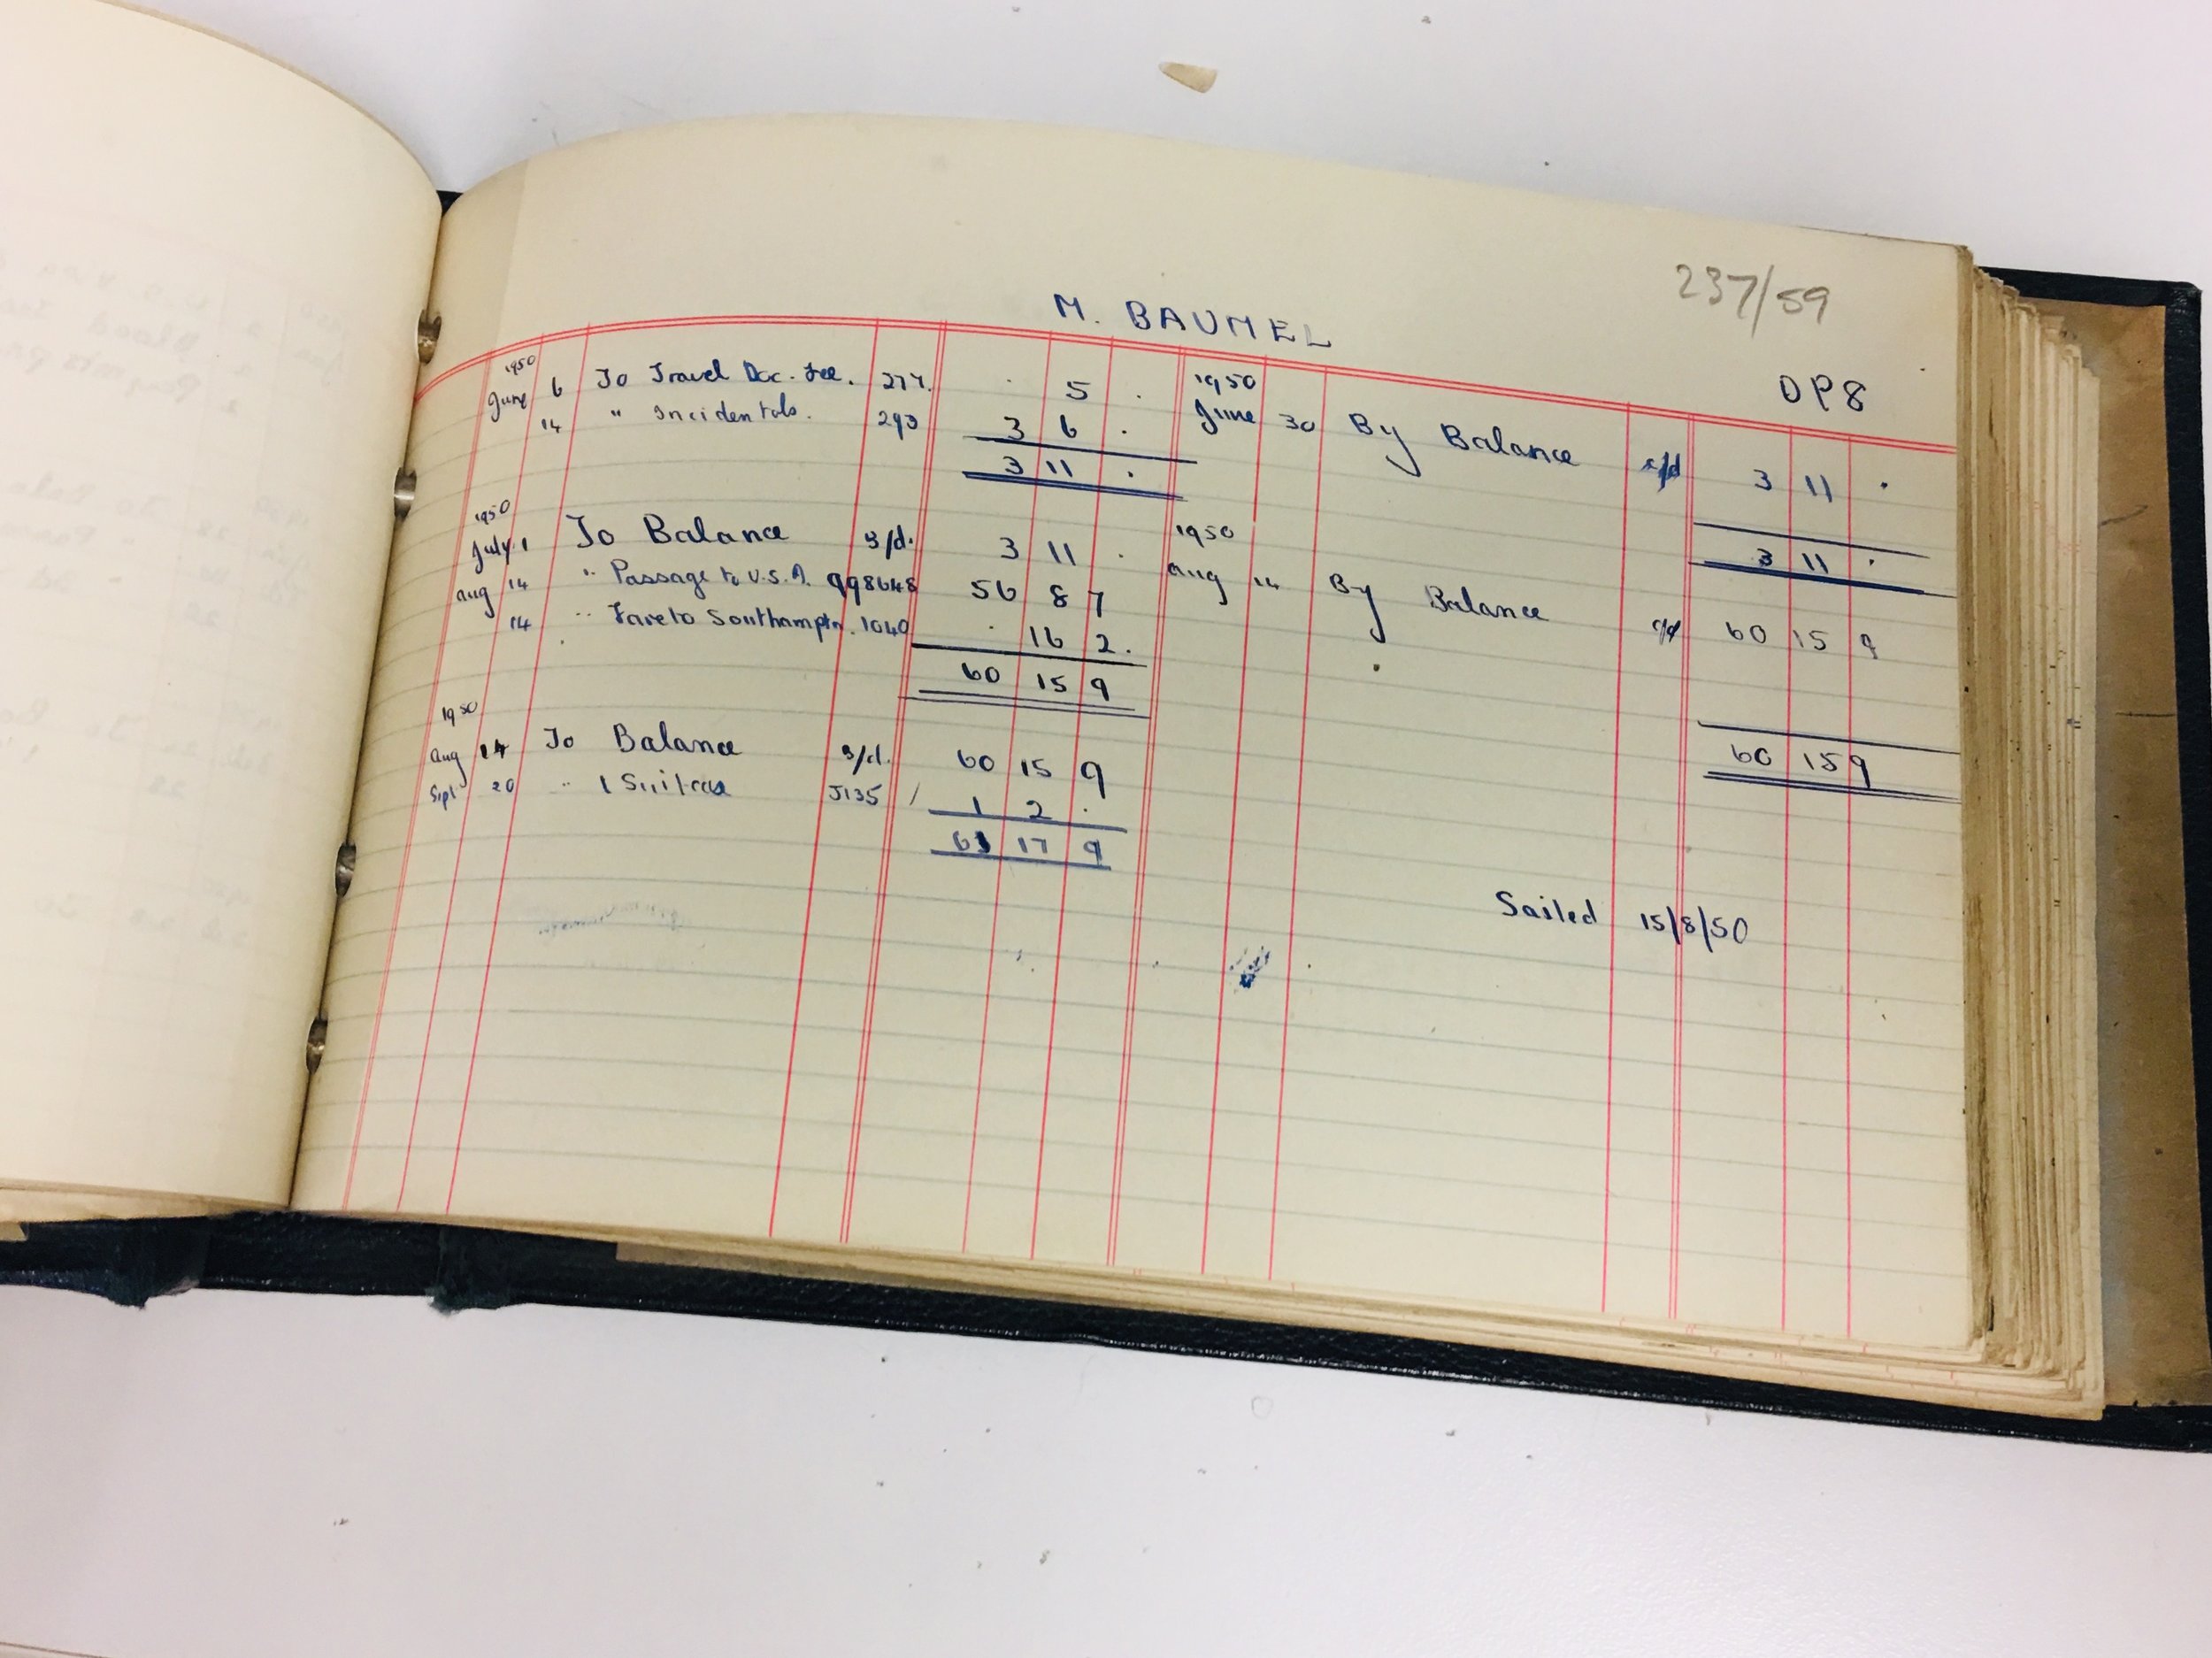 237/59
M. BAUMEL
DP8
1950
June 6 To Travel Doc. Fee. 277. . 5 .
14 " Incidentals. 293 3 6 .
3 11 .
1950
June 30 By Balance c/d 3 11 .
3 11 .
1950
July 1 To Balance B/d. 3 11 .
Aug 14 " Passage to U.S.A. 998648 56 8 7
14 " Fare to Southampton. 1040 . 16 2.
60 15 9
1950
Aug 14 By Balance c/d 60 15 9
60 15 9
1950
Aug 14 To Balance B/d. 60 15 9
Sept 20 " 1 Suitcase J135 / 1 2 .
61 17 9
Sailed 15/8/50